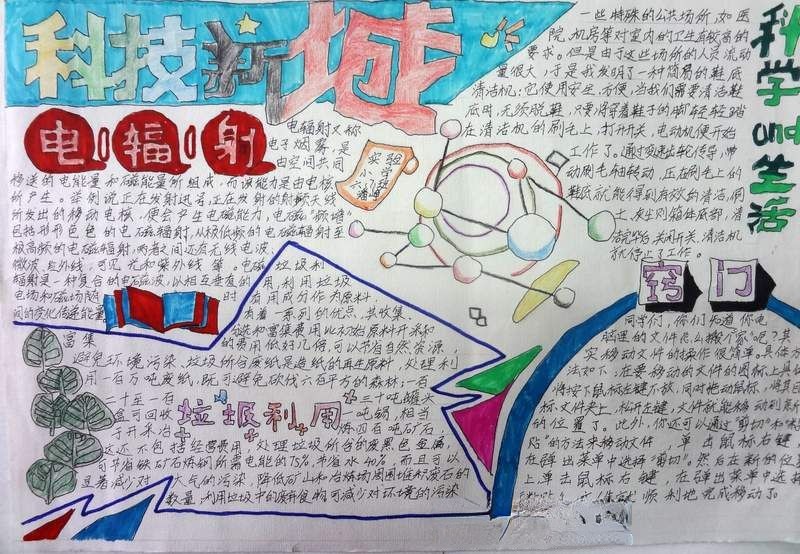 科技新城
电辐射
电辐射又称
电子烟雾,是
由空间共同
移送的电能量和磁能量所组成,而该能量是由电核
所产生。举例说正在发射讯号,正在发射的射频天线
所发出的移动电核,便会产生电磁能力,电磁“频谱”
包括形形色色的电磁辐射,从极低频的电磁辐射至
极高频的电磁辐射,两者之间还有无线电波
微波,红外线,可见光和紫外线等。电磁
辐射是一种复合的电磁波,以相互垂直的
电场和磁场随时
间的变化传递能量
实验
小学
六(7)班
一些特殊的公共场所,如医
院、机房等对室内的卫生有较高的
要求。但是由于这些场所的人员流动
量很大,于是我发明了一种简易的鞋底
清洁机,它使用安全,方便,当我们需要清洁鞋
底时,无须脱鞋,只要将穿着鞋子的脚轻轻踏
在清洁机的刷毛上,打开开关,电动机便开始
工作了。通过变速齿轮传导,带
动刷毛轴转动,压在刷毛上的
鞋底就能得到有效的清洁,刷
土灰尘则留体底部,清
洁完毕后,关闭开关,清洁机
就停止了工作。
科学and生活
窍门
同学们,你们知道你电
脑里的文件怎么搬“家”吧?其
实移动文件的操作很简单,具体方
法如下,在要移动的文件的图标上单
将按下鼠标左键不放,同时拖动鼠标,将其
标文件夹上,松开左键,文件就能移动到新
的位置了。此外,你还可以通过“剪切”和“粘
贴”的方法来移动文件 单击鼠标右键
在弹出菜单中选择“剪切”。然后在新的位置
上单击鼠标右键,在弹出菜单中选择
顺利地完成移动了。
垃圾利用
垃圾利
用,利用垃圾
有用成分作为原料
有着一系列的优点,其收集、
富集
分选和富集费用比初始原料开采和
的费用低好几倍,可以节省自然资源,
避免环境污染、垃圾所含废纸是造纸的再生原料,处理利
用一百万吨废纸,既可避免砍伐六百平方的森林;一百
二十至一百三十吨罐头
盒可回收一吨锡,相当
于开采冶炼四百吨矿石
这还不包括经营费用,处理垃圾所含的废黑色金属
可节省铁矿石炼钢所需电能的75%节省水40%,而且可以
显著减少对大气的污染,降低矿山和冶炼场周围堆积废石的
数量,利用垃圾中的废弃食物可减少对环境的污染